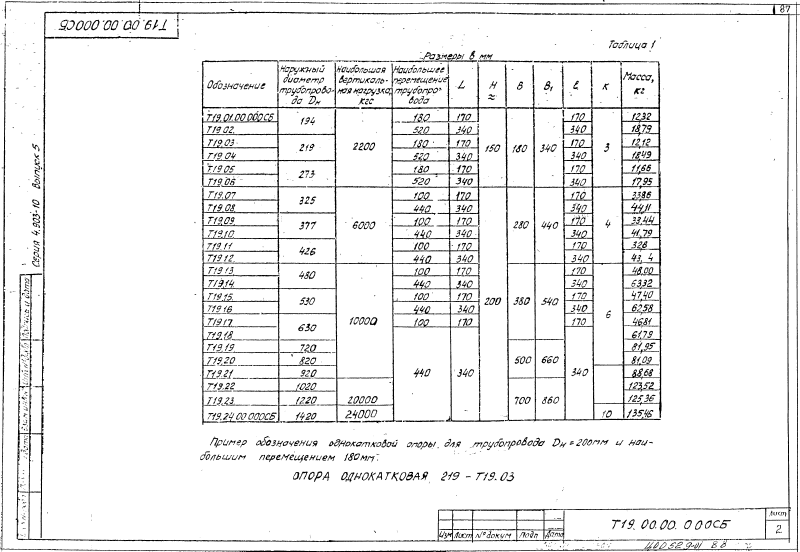 87
Т19.00.00.000СБ
Таблица 1
Размеры в мм
Обозначение | Наружный диаметр трубопровода Dн | Наибольшая вертикальная нагрузка, кгс | Наибольшее перемещение трубопровода | L | H ≈ | B | B₁ | ℓ | K | Масса, кг
Т19.01.00.000СБ | 194 | 2200 | 180 | 170 | 150 | 180 | 340 | 170 | 3 | 12,32
Т19.02 | 520 | 340 | 340 | 18,79
Т19.03 | 219 | 180 | 170 | 170 | 12,12
Т19.04 | 520 | 340 | 340 | 18,49
Т19.05 | 273 | 180 | 170 | 170 | 11,66
Т19.06 | 520 | 340 | 340 | 17,95
Т19.07 | 325 | 6000 | 100 | 170 | 200 | 280 | 440 | 170 | 4 | 33,86
Т19.08 | 440 | 340 | 340 | 44,11
Т19.09 | 377 | 100 | 170 | 170 | 33,44
Т19.10 | 440 | 340 | 340 | 41,79
Т19.11 | 426 | 100 | 170 | 170 | 32,8
Т19.12 | 440 | 340 | 340 | 43,4
Т19.13 | 480 | 10000 | 100 | 170 | 380 | 540 | 170 | 6 | 48,00
Т19.14 | 440 | 340 | 340 | 63,32
Т19.15 | 530 | 100 | 170 | 170 | 47,40
Т19.16 | 440 | 340 | 340 | 62,58
Т19.17 | 630 | 100 | 170 | 170 | 46,81
Т19.18 | 440 | 340 | 340 | 61,79
Т19.19 | 720 | 500 | 660 | 81,95
Т19.20 | 820 | 81,09
Т19.21 | 920 | 88,68
Т19.22 | 1020 | 700 | 860 | 123,52
Т19.23 | 1220 | 20000 | 125,36
Т19.24.00.000СБ | 1420 | 24000 | 10 | 135,46
Пример обозначения однокатковой опоры для трубопровода Dн = 200мм и наи-
большим перемещением 180мм:
ОПОРА ОДНОКАТКОВАЯ 219 – Т19.03
Серия 4.903-10 Выпуск 5
Изм Лист № докум Подп Дата
Т19.00.00.000СБ
Лист
2